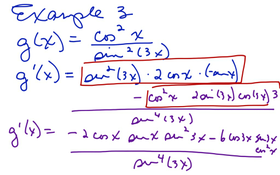 Example 3
g(x) = cos² x / sin² (3x)
g'(x) = sin² (3x) · 2 cos x · (-sin x)
- cos² x 2 sin (3x) cos (3x) 3
sin⁴ (3x)
g'(x) = - 2 cos x sin x sin² 3x - 6 cos 3x sin 3x cos² x
sin⁴ (3x)